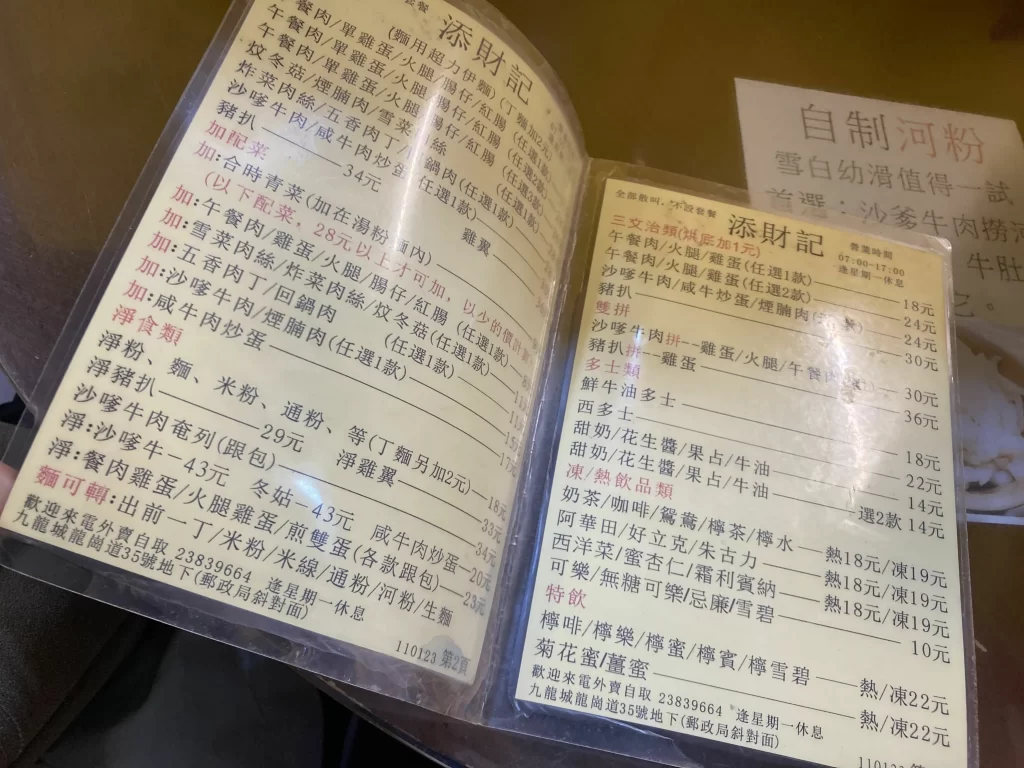 套餐
添財記
(麵用超力伊麵)(丁麵加2元)
午餐肉/單雞蛋/火腿/腸仔/紅腸 (任選1款)
午餐肉/單雞蛋/火腿/腸仔/紅腸 (任選2款)
午餐肉/單雞蛋/火腿/腸仔/紅腸
炆冬菇/煙腩肉/雪菜肉絲
炸菜肉絲/五香肉丁/回鍋肉(任選1款)
沙嗲牛肉/咸牛肉炒蛋(任選1款)
豬扒 34元 雞翼
加配菜
加:合時青菜(加在湯粉麵內)
(以下配菜,28元以上才可加,以少的價計算)
加:午餐肉/雞蛋/火腿/腸仔/紅腸 (任選1款)
加:雪菜肉絲/炸菜肉絲/炆冬菇(任選1款)
加:五香肉丁/回鍋肉 (任選1款)
加:沙嗲牛肉/煙腩肉(任選1款)
加:咸牛肉炒蛋 17元
淨食類
淨粉、麵、米粉、通粉、等(丁麵另加2元) 18元
淨豬扒 29元 淨雞翼 33元
沙嗲牛肉奄列(跟包) 34元
淨:沙嗲牛-43元 冬姑-43元 咸牛肉炒蛋-20元
淨:餐肉雞蛋/火腿雞蛋/煎雙蛋(各款跟包) 23元
麵可轉:出前一丁/米粉/米線/通粉/河粉/生麵
歡迎來電外賣自取 23839664 逢星期一休息
九龍城龍崗道35號地下(郵政局斜對面)
110123 第2頁
全部散叫,不設套餐
添財記
營業時間
07:00-17:00
逢星期一休息
三文治類(烘底加1元)
午餐肉/火腿/雞蛋(任選1款) 18元
午餐肉/火腿/雞蛋(任選2款) 24元
沙嗲牛肉/咸牛炒蛋/煙腩肉 24元
豬扒 30元
雙拼
沙嗲牛肉拼--雞蛋/火腿/午餐肉 30元
豬扒拼--雞蛋 36元
多士類
鮮牛油多士 18元
西多士 22元
甜奶/花生醬/果占/牛油 14元
甜奶/花生醬/果占/牛油 選2款 14元
凍/熱飲品類
奶茶/咖啡/鴛鴦/檸茶/檸水 熱18元/凍19元
阿華田/好立克/朱古力 熱18元/凍19元
西洋菜/蜜杏仁/霜利賓納 熱18元/凍19元
可樂/無糖可樂/忌廉/雪碧 10元
特飲
檸啡/檸樂/檸蜜/檸賓/檸雪碧 熱/凍22元
菊花蜜/薑蜜 熱/凍22元
歡迎來電外賣自取 23839664 逢星期一休息
九龍城龍崗道35號地下(郵政局斜對面)
自制河粉
雪白幼滑值得一試
首選:沙爹牛肉撈河
牛肚